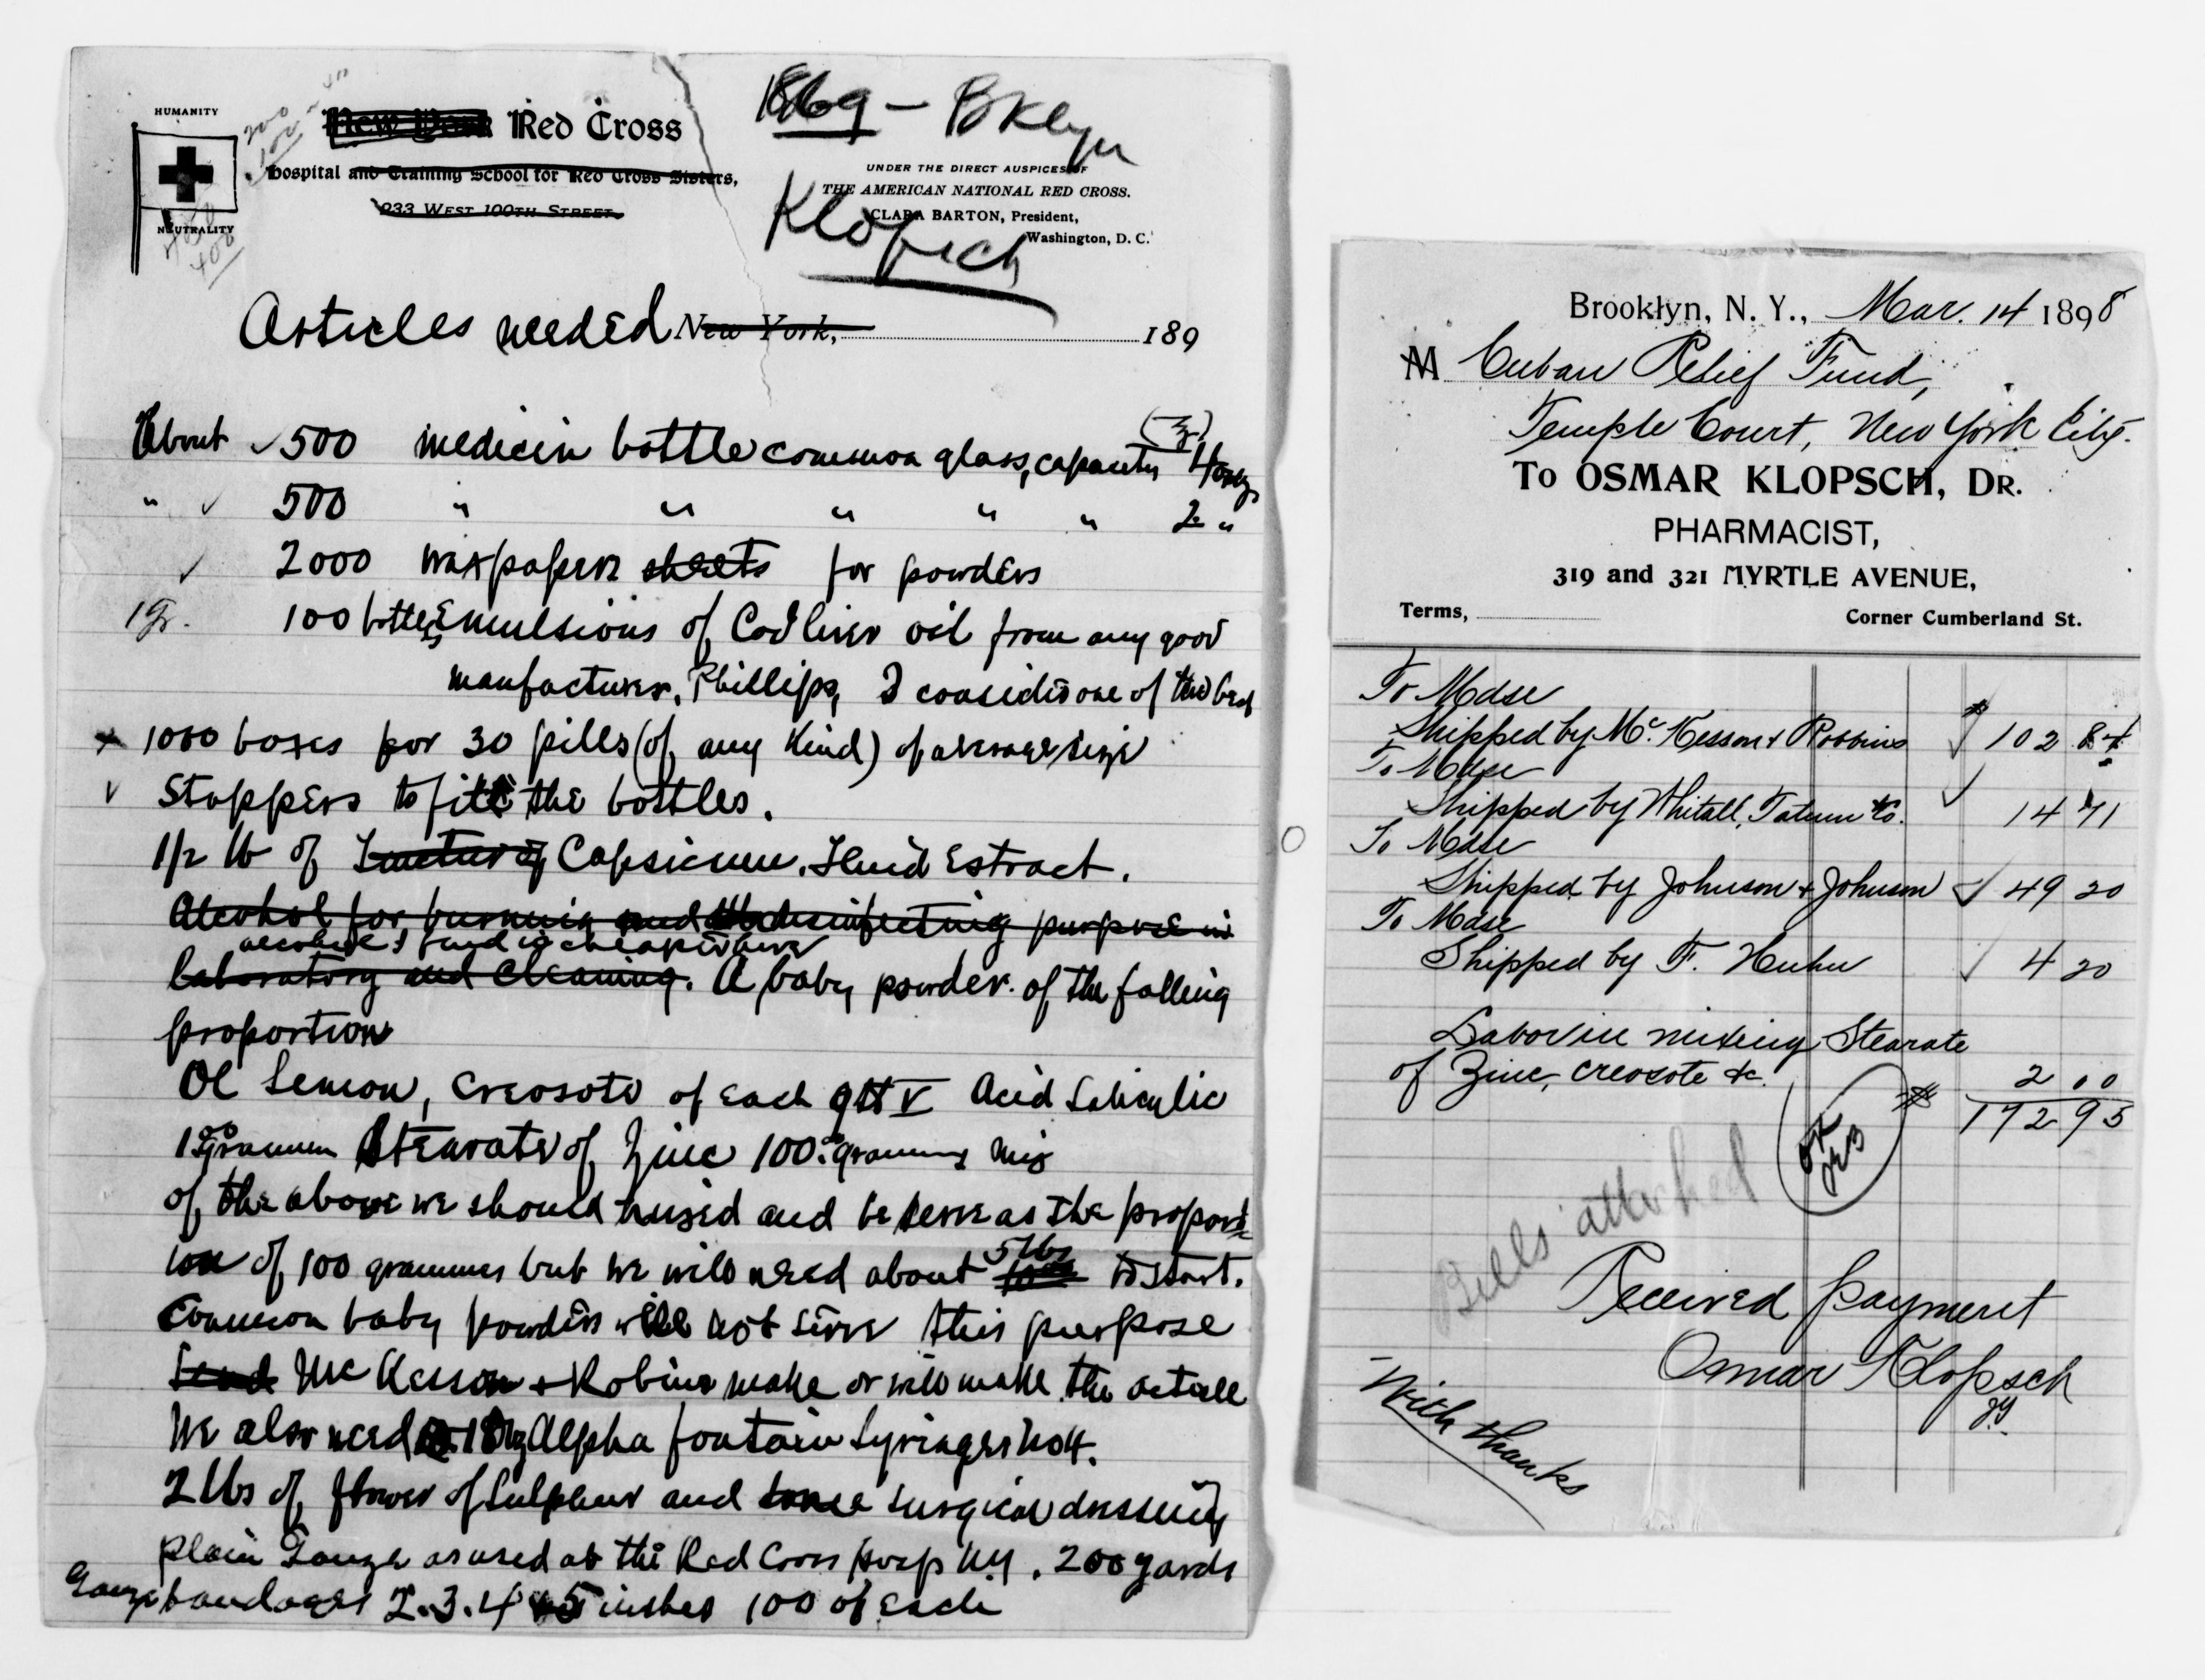 HUMANITY
NEUTRALITY
New York Red Cross
Hospital and Training School for Red Cross Sisters,
233 WEST 100TH STREET.
1869 - BKlyn
UNDER THE DIRECT AUSPICES OF
THE AMERICAN NATIONAL RED CROSS.
CLARA BARTON, President,
Washington, D. C.
Klopsch
Articles needed New York, 189
About 500 medicin bottle common glass, capacity 4
" 500 " " " " " 2 "
2000 waxpapers sheets for powders
1 gr. 100 bottles Emulsions of Cod liver oil from any good
manufacturer, Phillips, I consider one of the best
1000 boxes for 30 pills (of any kind) of average size
Stoppers to fitt the bottles.
1/2 lb of Tinctur of Capsicum. Fluid Extract.
Alcohol for burning and disinfecting purpose in
alcohol I find is cheaper here
laboratory and cleaning. A baby powder of the folling
proportion
Ol Lemon, Creosote of each gtt V Acid Salicylic
1 gramm Stearate of Zinc 100 gramms mix
of the above we should and be as the proport
ion of 100 grammes but we will need about 5 lbs to start.
Common baby powders will not serve this purpose
Send McKesson + Robins make or will make the article
We also need 1 Dz Alpha fontain Syringes No 4.
2 lbs of flower of Sulphur and some surgical dressing
plain Gauze as used at the Red Cross hosp N.Y. 200 yards
Gauze bandages 2.3.4 + 5 inches 100 of each
Brooklyn, N. Y., Mar. 14 1898
M Cuban Relief Fund,
Temple Court, New York City.
To OSMAR KLOPSCH, DR.
PHARMACIST,
319 and 321 MYRTLE AVENUE,
Terms, Corner Cumberland St.
To Mdse
Shipped by Mc Kesson & Robbins 102 84
To Mdse
Shipped by Whitall, Tatum & Co. 14 71
To Mdse
Shipped by Johnson & Johnson 49 20
To Mdse
Shipped by F. Huhn 4 20
Labor in mixing Stearate
of Zinc, creosote &c. 2 00
172 95
OK
Bills attached
Received payment
Osmar Klopsch
With thanks